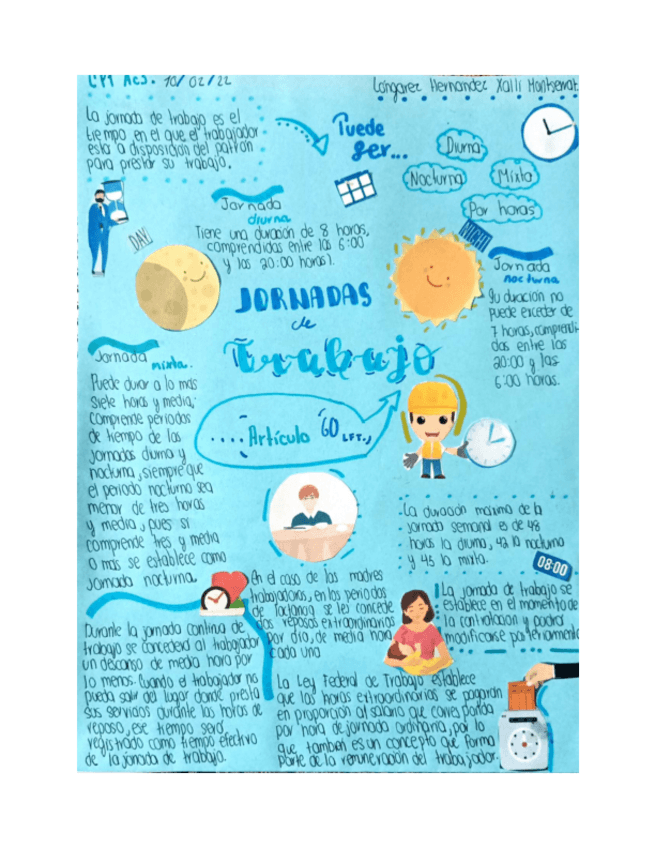 CPT Ac3. 10/02/22
Longarez Hernandez Xalli Montserrat
La jornada de trabajo es el
tiempo en el que el trabajador
está a disposición del patrón
para prestar su trabajo.
Puede
ser...
Diurna
Nocturna
Mixta
Por horas
Jornada
diurna
Tiene una duración de 8 horas,
comprendidas entre las 6:00
y las 20:00 horas).
DAY
NIGHT
JORNADAS
de
Trabajo
Jornada
nocturna
Su duración no
puede exceder de
7 horas, comprendi-
das entre las
20:00 y las
6:00 horas.
Jornada
mixta.
Puede durar a lo mas
siete horas y media,
comprende periodos
de tiempo de las
jornadas diurna y
nocturna, siempre que
el periodo nocturno sea
menor de tres horas
y media, pues si
comprende tres y media
o mas se establece como
jornada nocturna.
.... Artículo 60 LFT.,
La duración maxima de la
jornada semanal es de 48
horas la diurna, 42 la nocturna
y 45 la mixta.
08:00
En el caso de las madres
trabajadoras, en los periodos
de lactancia se les concede
dos reposos extraordinarios
por día, de media hora
cada uno
La jornada de trabajo se
establece en el momento de
la contratacion y podrá
modificarse posteriormente
Durante la jornada continua de
trabajo se concederá al trabajador
un descanso de media hora por
lo menos. Cuando el trabajador no
pueda salir del lugar donde presta
sus servicios durante las horas de
reposo, ese tiempo será
registrado como tiempo efectivo
de la jornada de trabajo.
La Ley Federal de Trabajo establece
que las horas extraordinarias se pagarán
en proporción al salario que corresponda
por hora de jornada ordinaria, por lo
que tambien es un concepto que forma
parte de la remuneración del trabajador.